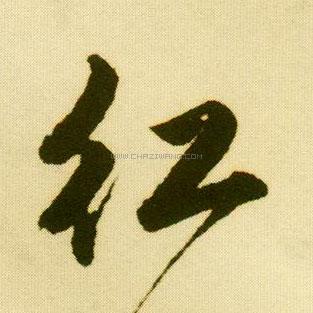 红
WWW.CHAZIWANG.COM